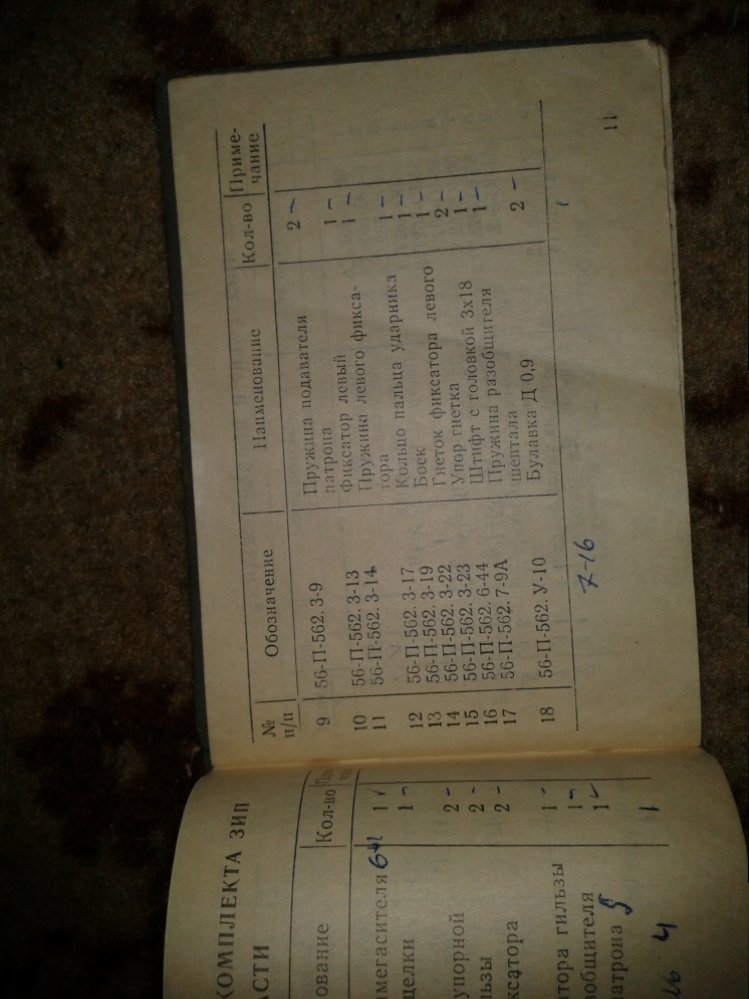 КОМПЛЕКТА ЗИП
АСТИ
ование Кол-во
мегасителя 1
щелки 1
упорной 2
ьзы 2
ксатора 2
тора гильзы 1
ообщителя 1
атрона 5 1
1
4
№ п/п Обозначение Наименование Кол-во Приме-
чание
9 56-П-562. 3-9 Пружина подавателя 2
патрона
10 56-П-562. 3-13 Фиксатор левый 1
11 56-П-562. 3-14 Пружина левого фикса- 1
тора
12 56-П-562. 3-17 Кольцо пальца ударника 1
13 56-П-562. 3-19 Боек 1
14 56-П-562. 3-22 Гнеток фиксатора левого 1
15 56-П-562. 3-23 Упор гнетка 2
16 56-П-562. 6-44 Штифт с головкой 3х18 1
17 56-П-562. 7-9А Пружина разобщителя 1
шептала
18 56-П-562. У-10 Булавка Д 0,9 2
7-16
11